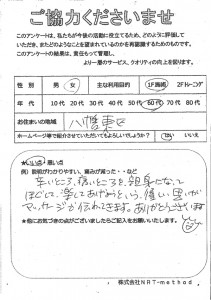 ご協力くださいませ
このアンケートは、私たちが今後の活動に役立てるため、どのように評価して
いただき、またどのようなことを望まれているのかを再認識するためのものです。
このアンケートの結果は、責任もって管理し、
より一層のサービス、クオリティの向上を図ります。
性別 男 女 主な利用目的 1F施術 2Fトレーニング
年代 10代 20代 30代 40代 50代 60代 70代 80代
お住まいの地域 八幡東区
ホームページ等で紹介させていただいてもよろしいでしょうか? はい いいえ
★いい点 悪い点
例）説明がわかりやすい、痛みが減った・・など
辛いところ、痛いところを、親身になって
ほぐして、楽してあげようという、優しい思いが
マッサージから伝わってきます。ありがとうございます
★他にお気づきの点がございましたらご記入をお願いいたします。
株式会社NRT-method